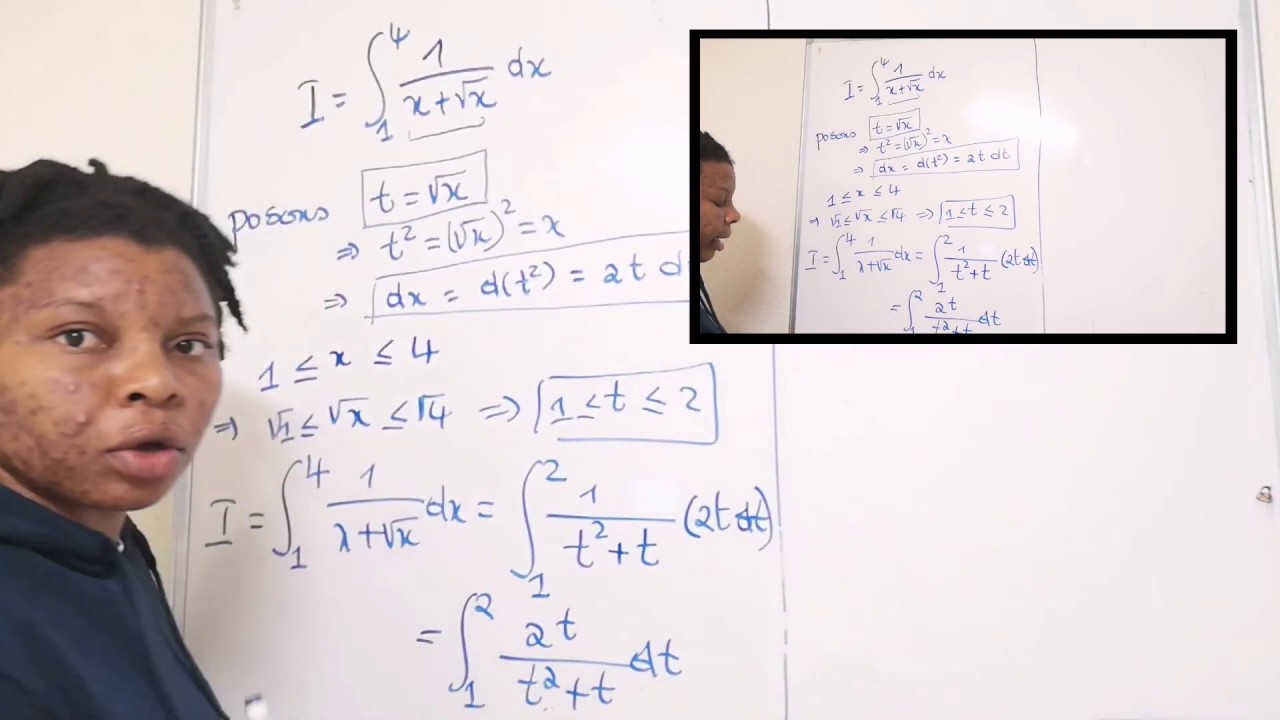 I = ∫₁⁴ 1/(x+√x) dx
posons t = √x
⇒ t² = (√x)² = x
⇒ dx = d(t²) = 2t d
1 ≤ x ≤ 4
⇒ √1 ≤ √x ≤ √4 ⇒ 1 ≤ t ≤ 2
I = ∫₁⁴ 1/(x+√x) dx = ∫₁² 1/(t²+t) (2t dt)
= ∫₁² 2t/(t²+t) dt
I = ∫₁⁴ 1/(x+√x) dx
posons t = √x
⇒ t² = (√x)² = x
⇒ dx = d(t²) = 2t dt
1 ≤ x ≤ 4
⇒ √1 ≤ √x ≤ √4 ⇒ 1 ≤ t ≤ 2
I = ∫₁⁴ 1/(x+√x) dx = ∫₁² 1/(t²+t) (2t dt)
= ∫₁² 2t/(t²+t) dt